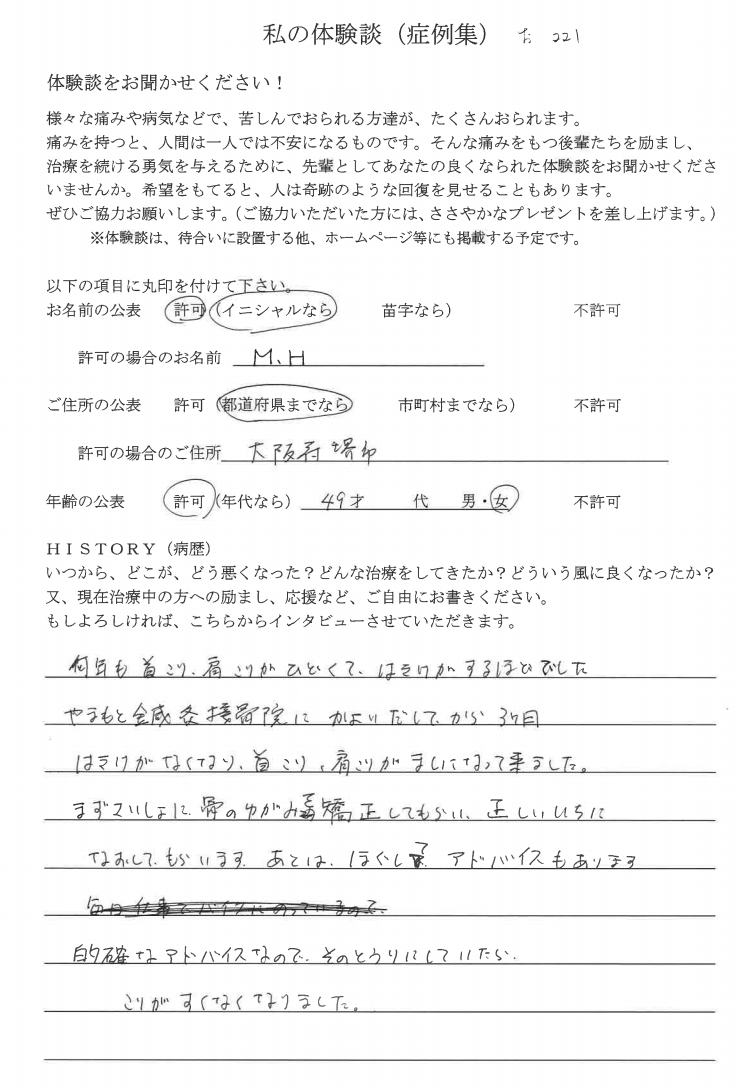 私の体験談（症例集） 221
体験談をお聞かせください！
様々な痛みや病気などで、苦しんでおられる方達が、たくさんおられます。
痛みを持つと、人間は一人では不安になるものです。そんな痛みをもつ後輩たちを励まし、
治療を続ける勇気を与えるために、先輩としてあなたの良くなられた体験談をお聞かせくださ
いませんか。希望をもてると、人は奇跡のような回復を見せることもあります。
ぜひご協力お願いします。（ご協力いただいた方には、ささやかなプレゼントを差し上げます。）
※体験談は、待合いに設置する他、ホームページ等にも掲載する予定です。
以下の項目に丸印を付けて下さい。
お名前の公表 許可 （イニシャルなら 苗字なら） 不許可
許可の場合のお名前 M.H
ご住所の公表 許可 （都道府県までなら 市町村までなら） 不許可
許可の場合のご住所 大阪府堺市
年齢の公表 許可 （年代なら） 49才 代 男・女 不許可
ＨＩＳＴＯＲＹ（病歴）
いつから、どこが、どう悪くなった？どんな治療をしてきたか？どういう風に良くなったか？
又、現在治療中の方への励まし、応援など、ご自由にお書きください。
もしよろしければ、こちらからインタビューさせていただきます。
何年も首こり、肩こりがひどくて、はきけがするほどでした
やまもと金咸灸接骨院にかよいだしてから3ヶ月
はきけがなくなり、首こり、肩こりがましになって来ました。
まずさいしょに、骨のゆがみを矯正してもらい、正しいいちに
なおしてもらいます。あとは、ほぐして アドバイスもあります
毎日仕事でバイクにのっているので、
的確なアドバイスなので、そのとうりにしていたら、
こりがすくなくなりました。